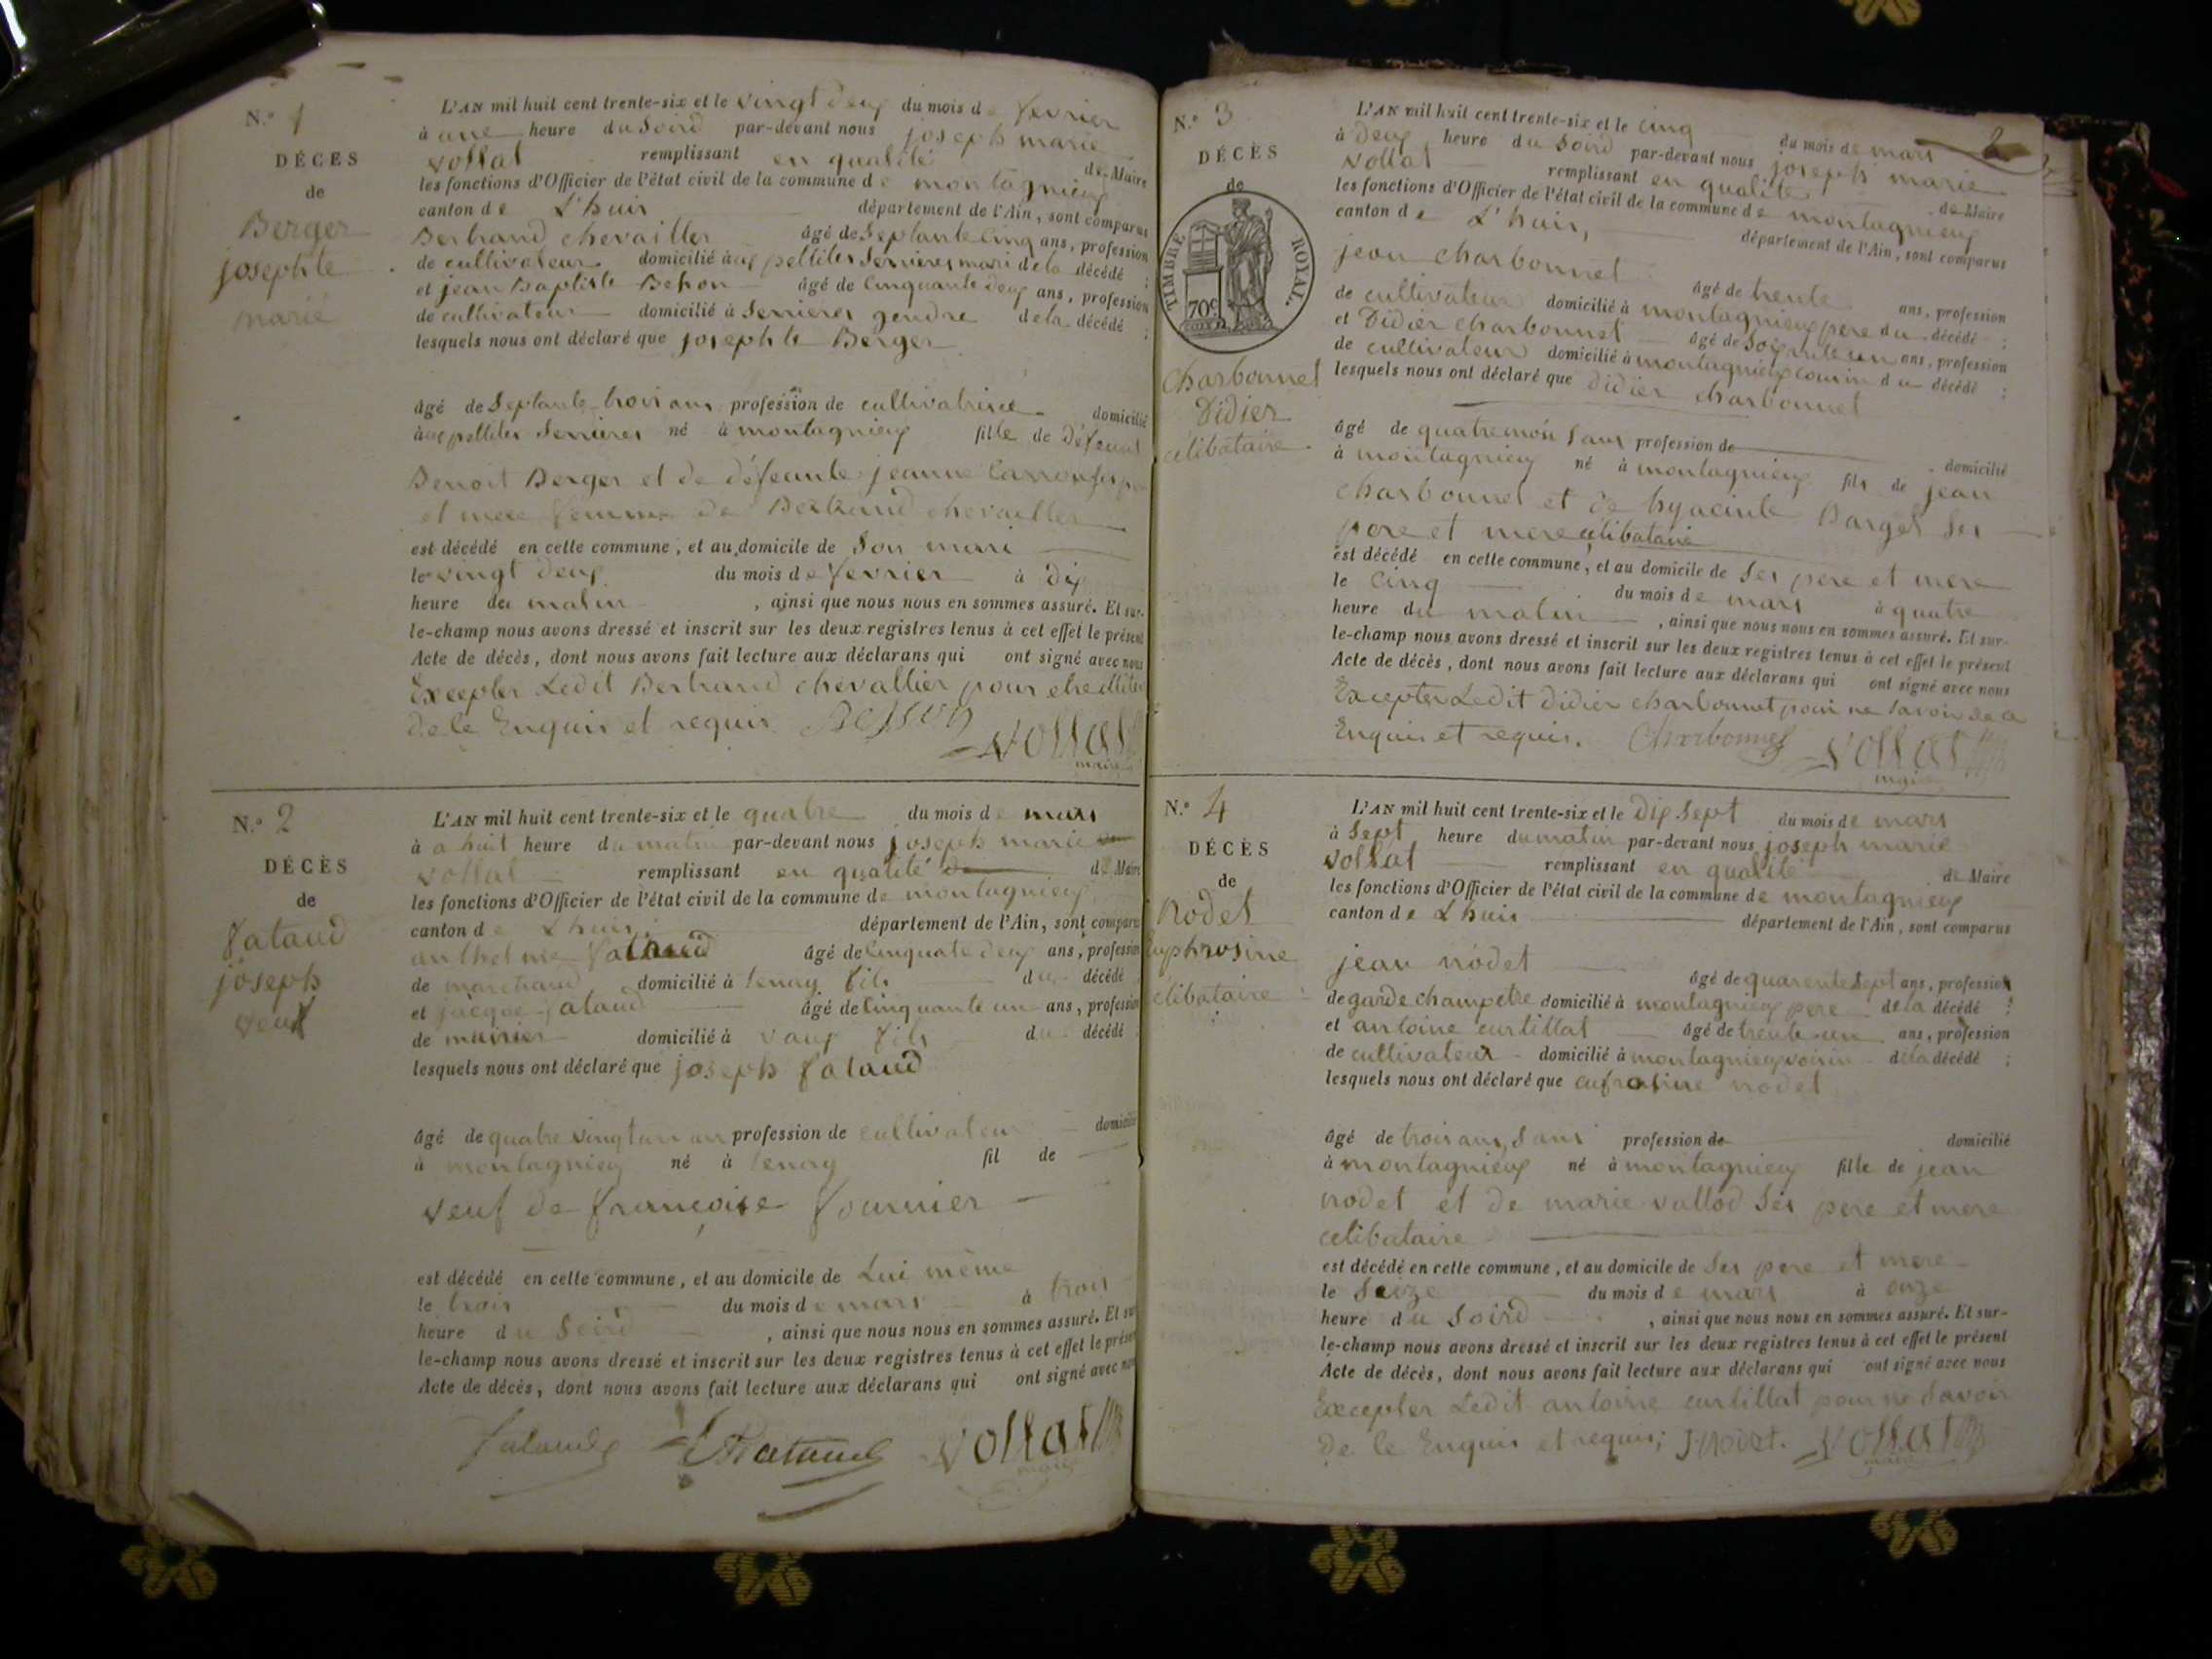 N.º 1
DÉCES
de
Berger
josephte
marié
L'AN mil huit cent trente-six et le vingt deux du mois de fevrier
à une heure du Soird par-devant nous joseph marie
vollat remplissant en qualité de Maire
les fonctions d'Officier de l'état civil de la commune de montagnieux
canton de L'huis département de l'Ain, sont comparus
Bertrand chevallier âgé de Septante Cinq ans, profession
de cultivateur domicilié aux pettites Serrieres mari de la décédé ;
et jean Baptiste âgé de Cinquante deux ans, profession
de cultivateur domicilié à Serrieres gendre de la décédé ;
lesquels nous ont déclaré que josephte Berger
âgé de Septante trois ans profession de cultivatrice domicilié
aux pettites Serrieres né à montagnieux fille de
Benoit Berger et de jeanne
et mere femme de Bertrand chevallier
est décédé en cette commune, et au domicile de Son mari
le vingt deux du mois de fevrier à dix
heure du matin , ainsi que nous nous en sommes assuré. Et sur-
le-champ nous avons dressé et inscrit sur les deux registres tenus à cet effet le présent
Acte de décès, dont nous avons fait lecture aux déclarans qui ont signé avec nous
Excepter Ledit Bertrand chevallier pour
de le Enquis et requis. vollat
maire
N.º 2
DÉCÈS
de
fataud
joseph
veuf
L'AN mil huit cent trente-six et le quatre du mois de mars
à a huit heure du matin par-devant nous joseph marie
vollat remplissant en qualité de Maire
les fonctions d'Officier de l'état civil de la commune de montagnieux
canton de Lhuis département de l'Ain, sont comparus
anthelme fataud âgé de Cinquate deux ans, profession
de marchand domicilié à tenay fils du décédé
et jacque fataud âgé de Cinquante un ans, profession
de domicilié à vaux fils du décédé
lesquels nous ont déclaré que joseph fataud
âgé de quatre vingt un an profession de cultivateur domicilié
à montagnieux né à tenay fil de
veuf de françoise fournier
est décédé en cette commune, et au domicile de Lui même
le trois du mois de mars à trois
heure du Soird , ainsi que nous nous en sommes assuré. Et sur
le-champ nous avons dressé et inscrit sur les deux registres tenus à cet effet le présent
Acte de décès, dont nous avons fait lecture aux déclarans qui ont signé avec nous
fataud fataud vollat
maire
2
N.º 3
DÉCÈS
de
TIMBRE ROYAL.
70c
Charbonnet
Didier
célibataire
L'AN mil huit cent trente-six et le cinq du mois de mars
à deux heure du Soird par-devant nous joseph marie
vollat remplissant en qualité de Maire
les fonctions d'Officier de l'état civil de la commune de montagnieux
canton de L'huis, département de l'Ain, sont comparus
jean charbonnet âgé de trente ans, profession
de cultivateur domicilié à montagnieux pere du décédé ;
et Didier charbonnet âgé de Soixente un ans, profession
de cultivateur domicilié à montagnieux cousin du décédé ;
lesquels nous ont déclaré que didier charbonnet
âgé de quatre mois Sans profession de domicilié
à montagnieux né à montagnieux fils de jean
charbonnet et de hyacinte Barget Ses
pere et mere célibataire
est décédé en cette commune, et au domicile de Ses pere et mere
le Cinq du mois de mars à quatre
heure du matin , ainsi que nous nous en sommes assuré. Et sur-
le-champ nous avons dressé et inscrit sur les deux registres tenus à cet effet le présent
Acte de décès, dont nous avons fait lecture aux déclarans qui ont signé avec nous
Excepter Ledit didier charbonnet pour ne Savoir de ce
Enquis et requis. Charbonnet vollat
maire
N.º 4
DÉCÈS
de
Nodet
Euphrosine
célibataire
L'AN mil huit cent trente-six et le dix Sept du mois de mars
à Sept heure du matin par-devant nous joseph marie
vollat remplissant en qualité de Maire
les fonctions d'Officier de l'état civil de la commune de montagnieux
canton de Lhuis département de l'Ain, sont comparus
jean nodet âgé de quarente Sept ans, profession
de garde champetre domicilié à montagnieux pere de la décédé ;
et antoine curtillat âgé de trente un ans, profession
de cultivateur domicilié à montagnieux voisin de la décédé ;
lesquels nous ont déclaré que eufrosine nodet
âgé de trois ans, Sans profession de domicilié
à montagnieux né à montagnieux fille de jean
nodet et de marie vallod Ses pere et mere
celibataire
est décédé en cette commune, et au domicile de Ses pere et mere
le Seize du mois de mars à onze
heure du Soird , ainsi que nous nous en sommes assuré. Et sur-
le-champ nous avons dressé et inscrit sur les deux registres tenus à cet effet le présent
Acte de décès, dont nous avons fait lecture aux déclarans qui ont signé avec nous
Excepter Ledit antoine curtillat pour ne Savoir
de le Enquis et requis; J. Nodet. vollat
maire